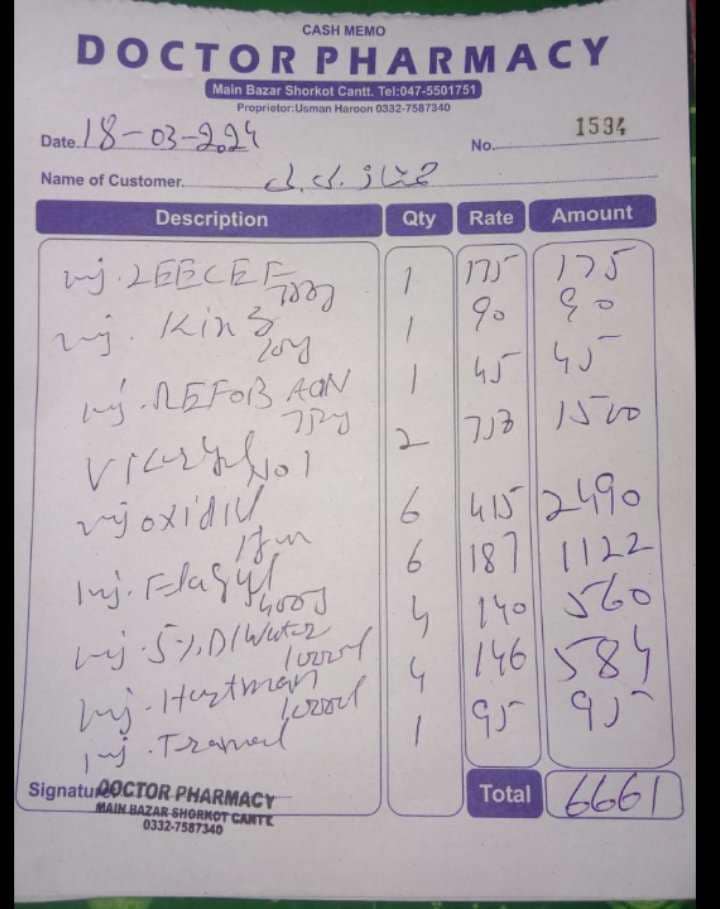 CASH MEMO
DOCTOR PHARMACY
Main Bazar Shorkot Cantt. Tel:047-5501751
Proprietor:Usman Haroon 0332-7587340
Date. 18-03-2024
No. 1594
Name of Customer.
Description Qty Rate Amount
inj. 1 175 175
inj. Kinz 1 90 90
20mg
inj. 1 45 45
Vicryl No 1 2 1500
inj oxidil 6 415 2490
1gm
inj. Flagyl 6 187 1122
inj. 5% D/Water 4 140 560
1000ml
inj. Hartman 4 146 584
1000ml
inj. Tramal 1 95 95
Signature
DOCTOR PHARMACY
MAIN BAZAR SHORKOT CANTT.
0332-7587340
Total 6661